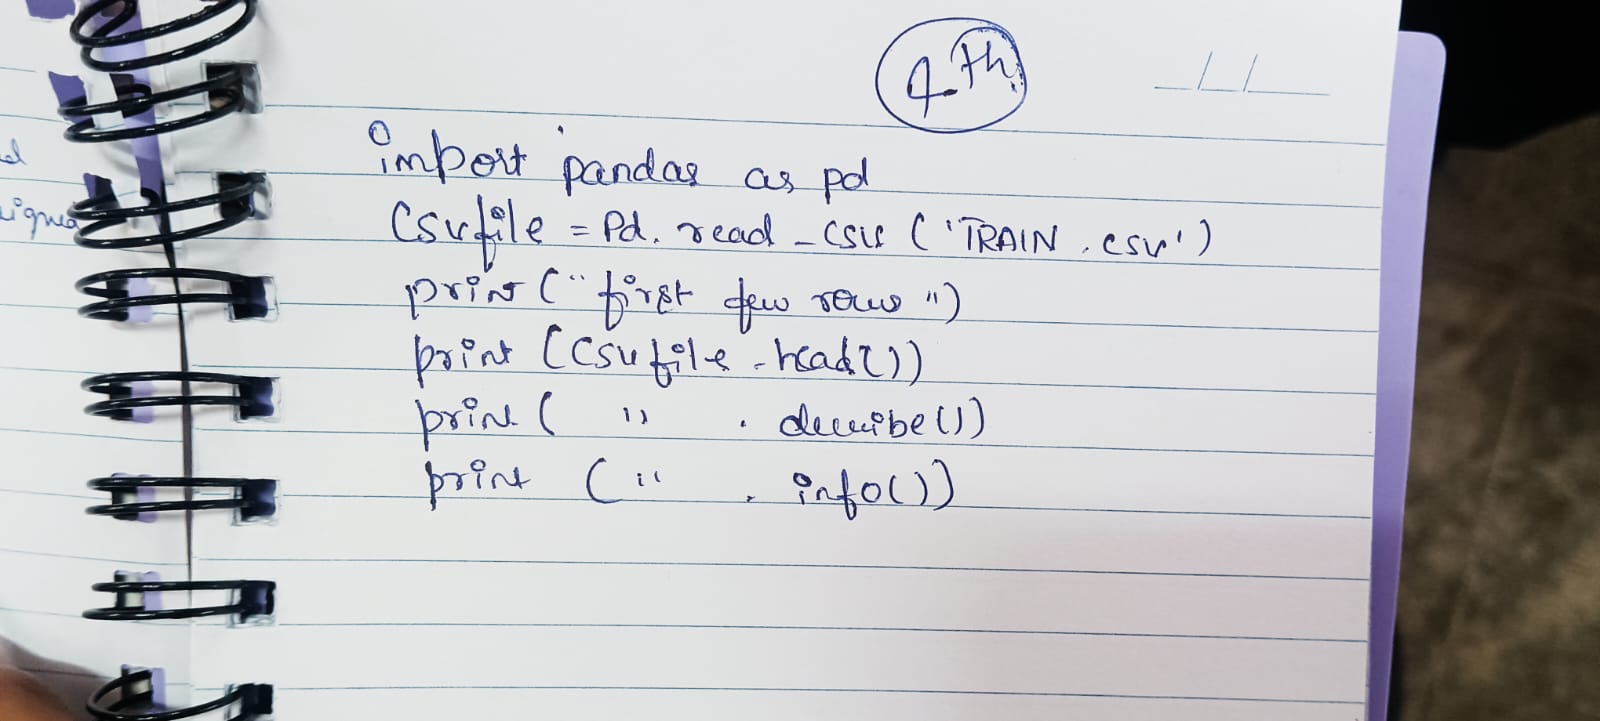 4th
import pandas as pd
csvfile = Pd. read _csv ('TRAIN . csv')
print (" first few rows ")
print (csvfile . head())
print ( " . describe())
print ( " . info())